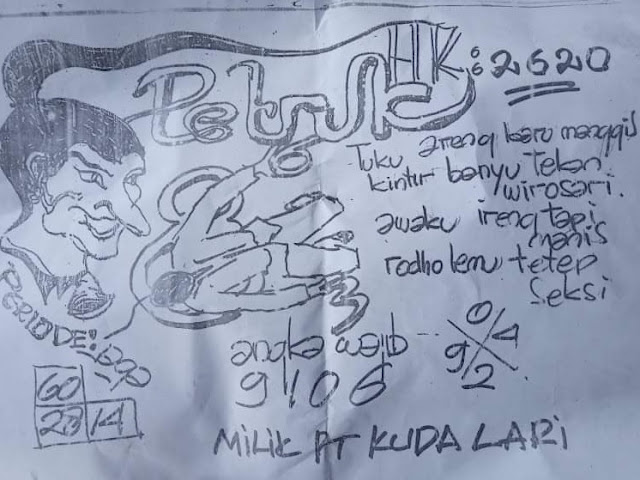 Petruk HK: 2620
Tuku areng baru manggil
kintir banyu tekan
wirosari.
awaku ireng tapi
manis
rodho lemu tetep
Seksi
PERIODE!
angka wajib
9106
0
9 4
2
60
14
MILIK PT KUDA LARI